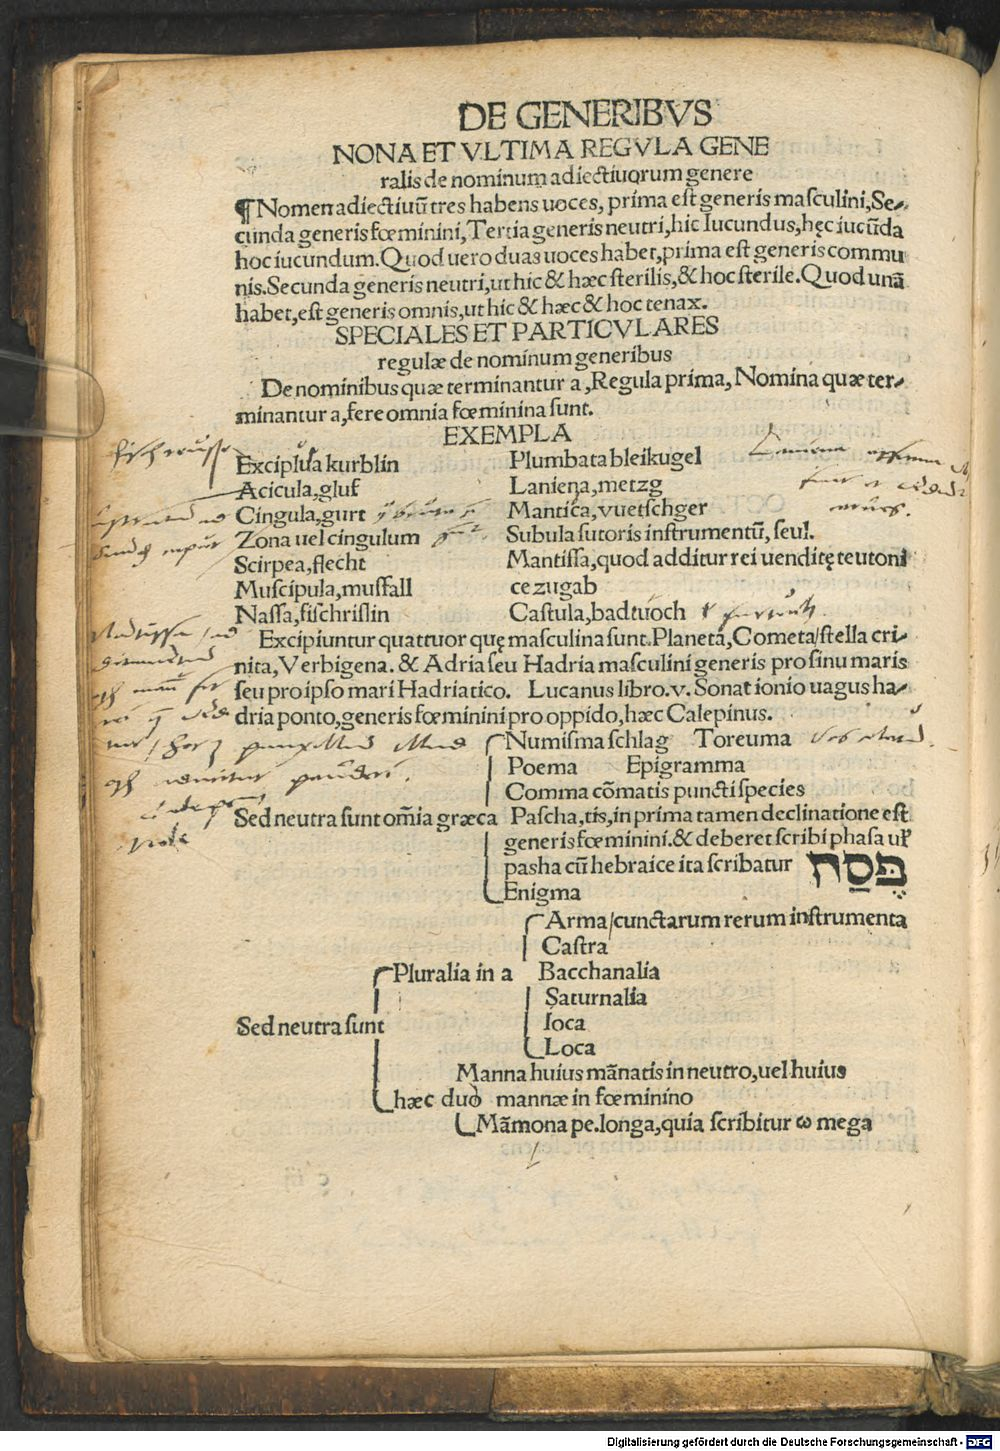 DE GENERIBVS
NONA ET VLTIMA REGVLA GENE
ralis de nominum adiectiuorum genere
¶ Nomen adiectiuū tres habens uoces, prima est generis masculini, Se-
cunda generis fœminini, Tertia generis neutri, hic Iucundus, hęc iucūda
hoc iucundum. Quod uero duas uoces habet, prima est generis commu
nis. Secunda generis neutri, ut hic & hæc sterilis, & hoc sterile. Quod unā
habet, est generis omnis, ut hic & hæc & hoc tenax.
SPECIALES ET PARTICVLARES
regulæ de nominum generibus
De nominibus quæ terminantur a, Regula prima, Nomina quæ ter-
minantur a, fere omnia fœminina sunt.
EXEMPLA
Excipula kurblin
Acicula, gluf
Cingula, gurt
Zona uel cingulum
Scirpea, flecht
Muscipula, musfall
Nassa, fischrislin
Plumbata bleikugel
Laniena, metzg
Mantica, vuetschger
Subula sutoris instrumentū, seul.
Mantissa, quod additur rei uenditę teutoni
ce zugab
Castula, badtuoch
Excipiuntur quattuor quę masculina sunt. Planeta, Cometa/stella cri-
nita, Verbigena. & Adria seu Hadria masculini generis pro sinu maris
seu pro ipso mari Hadriatico. Lucanus libro .v. Sonat ionio uagus ha-
dria ponto, generis fœminini pro oppido, hæc Calepinus.
Numisma schlag Toreuma
Poema Epigramma
Comma cōmatis puncti species
Sed neutra sunt om̄ia græca Pascha, tis, in prima tamen declinatione est
generis fœminini. & deberet scribi phasa uł
pasha cū hebraice ita scribatur פֶּסַח
Enigma
Arma/cunctarum rerum instrumenta
Castra
Pluralia in a Bacchanalia
Saturnalia
Sed neutra sunt Ioca
Loca
Manna huius mānatis in neutro, uel huius
hæc duo mannæ in fœminino
Māmona pe. longa, quia scribitur ω mega
Digitalisierung gefördert durch die Deutsche Forschungsgemeinschaft - DFG